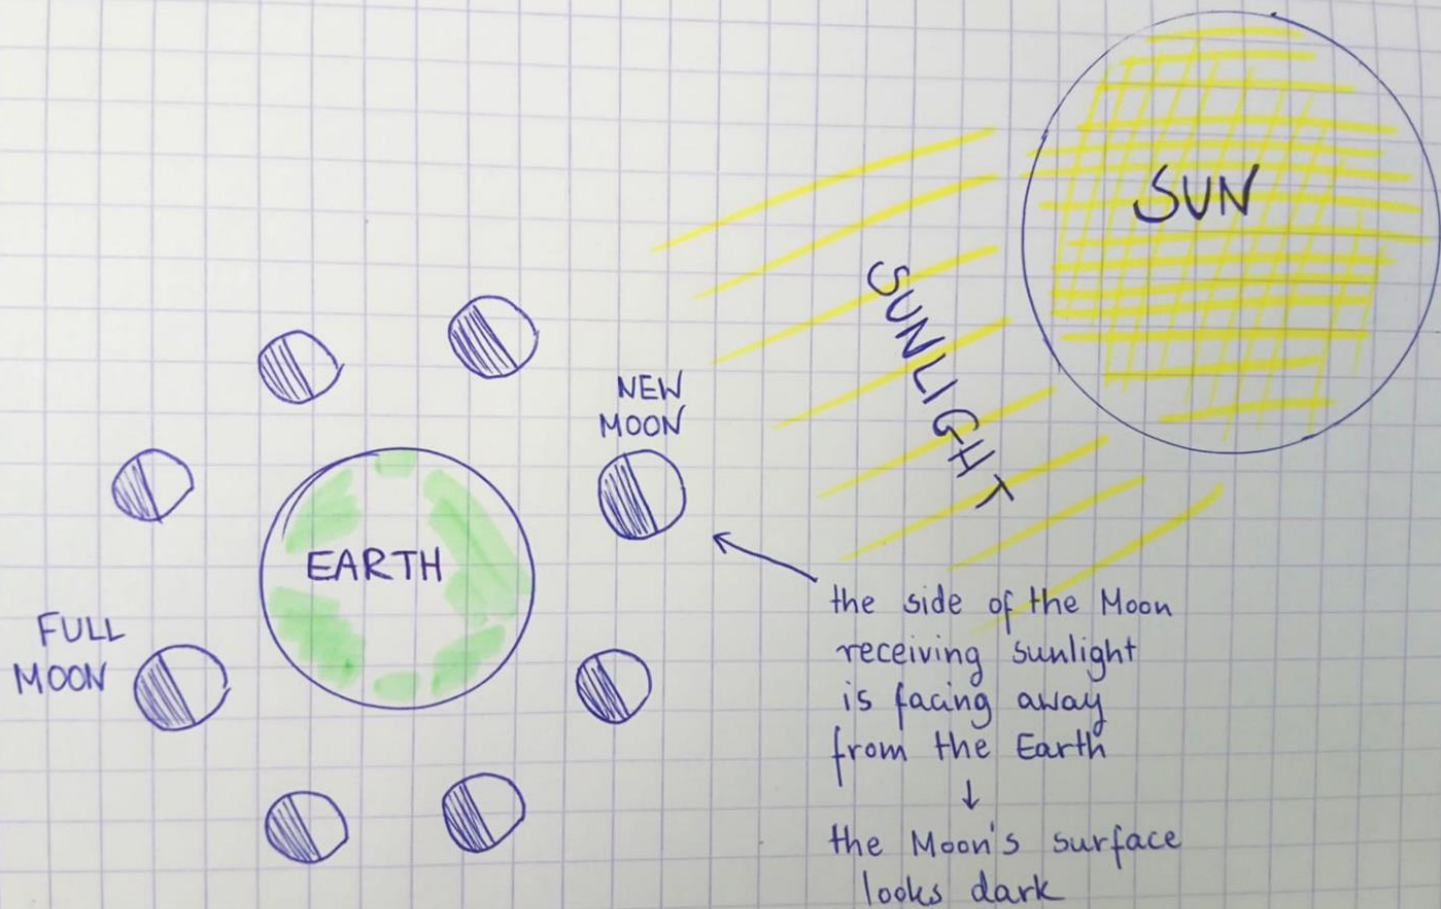 SUN
SUNLIGHT
NEW
MOON
EARTH
FULL
MOON
the side of the Moon
receiving sunlight
is facing away
from the Earth
↓
the Moon's surface
looks dark